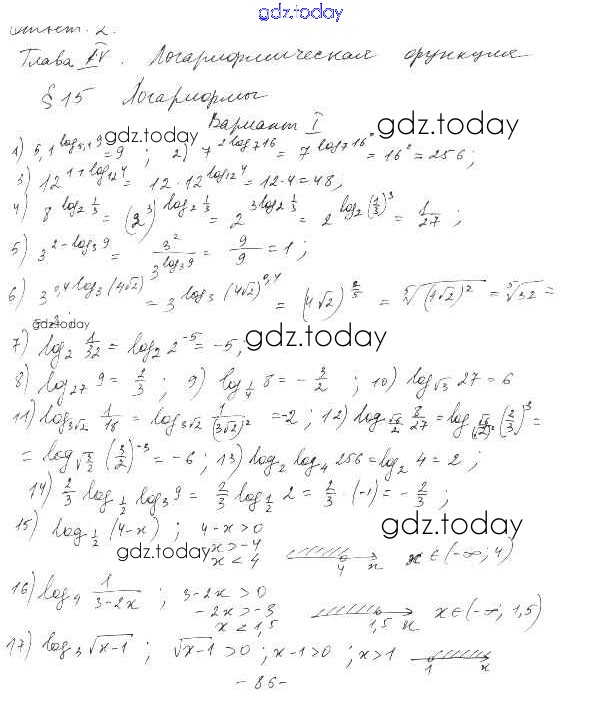 gdz.today
Ответ. 2.
Глава IV. Логарифмическая функция
§ 15 Логарифмы
Вариант I
gdz.today gdz.today
1) 5,1^{log_{5,1} 9} = 9 ; 2) 7^{2 log_7 16} = 7^{log_7 16^2} = 16^2 = 256;
3) 12^{1+log_{12} 4} = 12·12^{log_{12} 4} = 12·4 = 48;
4) 8^{log_2 1/3} = (2^3)^{log_2 1/3} = 2^{3 log_2 1/3} = 2^{log_2 (1/3)^3} = 1/27 ;
5) 3^{2-log_3 9} = 3^2/3^{log_3 9} = 9/9 = 1 ;
6) 3^{0,4 log_3 (4√2)} = 3^{log_3 (4√2)^{0,4}} = (4√2)^{2/5} = ⁵√((4√2)^2) = ⁵√32 =
gdz.today
7) log_2 1/32 = log_2 2^{-5} = -5, gdz.today
8) log_{27} 9 = 2/3 ; 9) log_{1/4} 8 = - 3/2 ; 10) log_{√3} 27 = 6
11) log_{3√2} 1/18 = log_{3√2} 1/(3√2)^2 = -2 ; 12) log_{√6/2} 8/27 = log (2/3)^3 =
= log_{√3/2} (3/2)^{-3} = -6 ; 13) log_2 log_4 256 = log_2 4 = 2 ;
14) 2/3 log_{1/2} log_3 9 = 2/3 log_{1/2} 2 = 2/3 · (-1) = - 2/3 ;
15) log_{1/2} (4-x) ; 4-x>0 gdz.today
gdz.today x>-4
x<4 4 x x∈(-∞; 4)
16) log_4 1/(3-2x) ; 3-2x>0
-2x>-3
x<1,5 1,5 x x∈(-∞; 1,5)
17) log_3 √(x-1) ; √(x-1) >0 ; x-1>0 ; x>1 1 x
- 86-